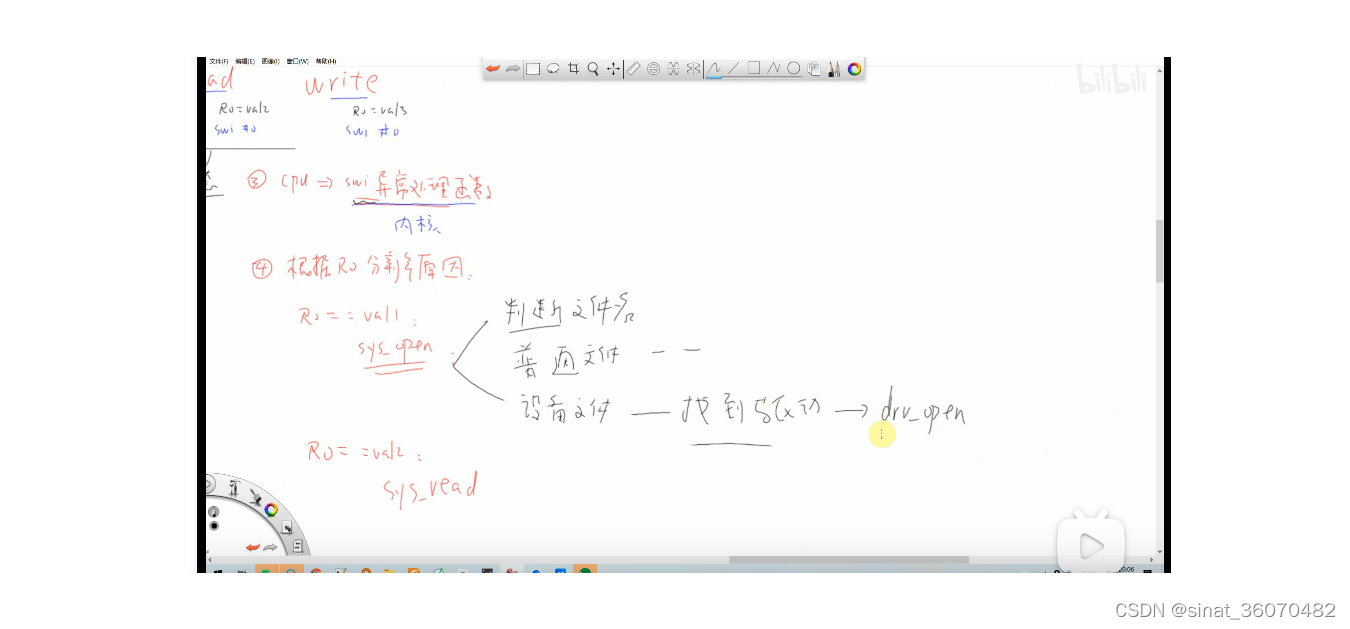 文件(F) 编辑(E) 图像(I) 窗口(W) 帮助(H)
bilibili
ad write
R0=val2 R0=val3
swi #0 swi #0
③ cpu => swi 异常处理函数
内核
④ 根据R0分辨原因.
R0==val1:
sys_open
判断文件名
普通文件 — —
设备文件 — 找到驱动 → drv_open
R0==val2:
sys_read
20:06
CSDN @sinat_36070482